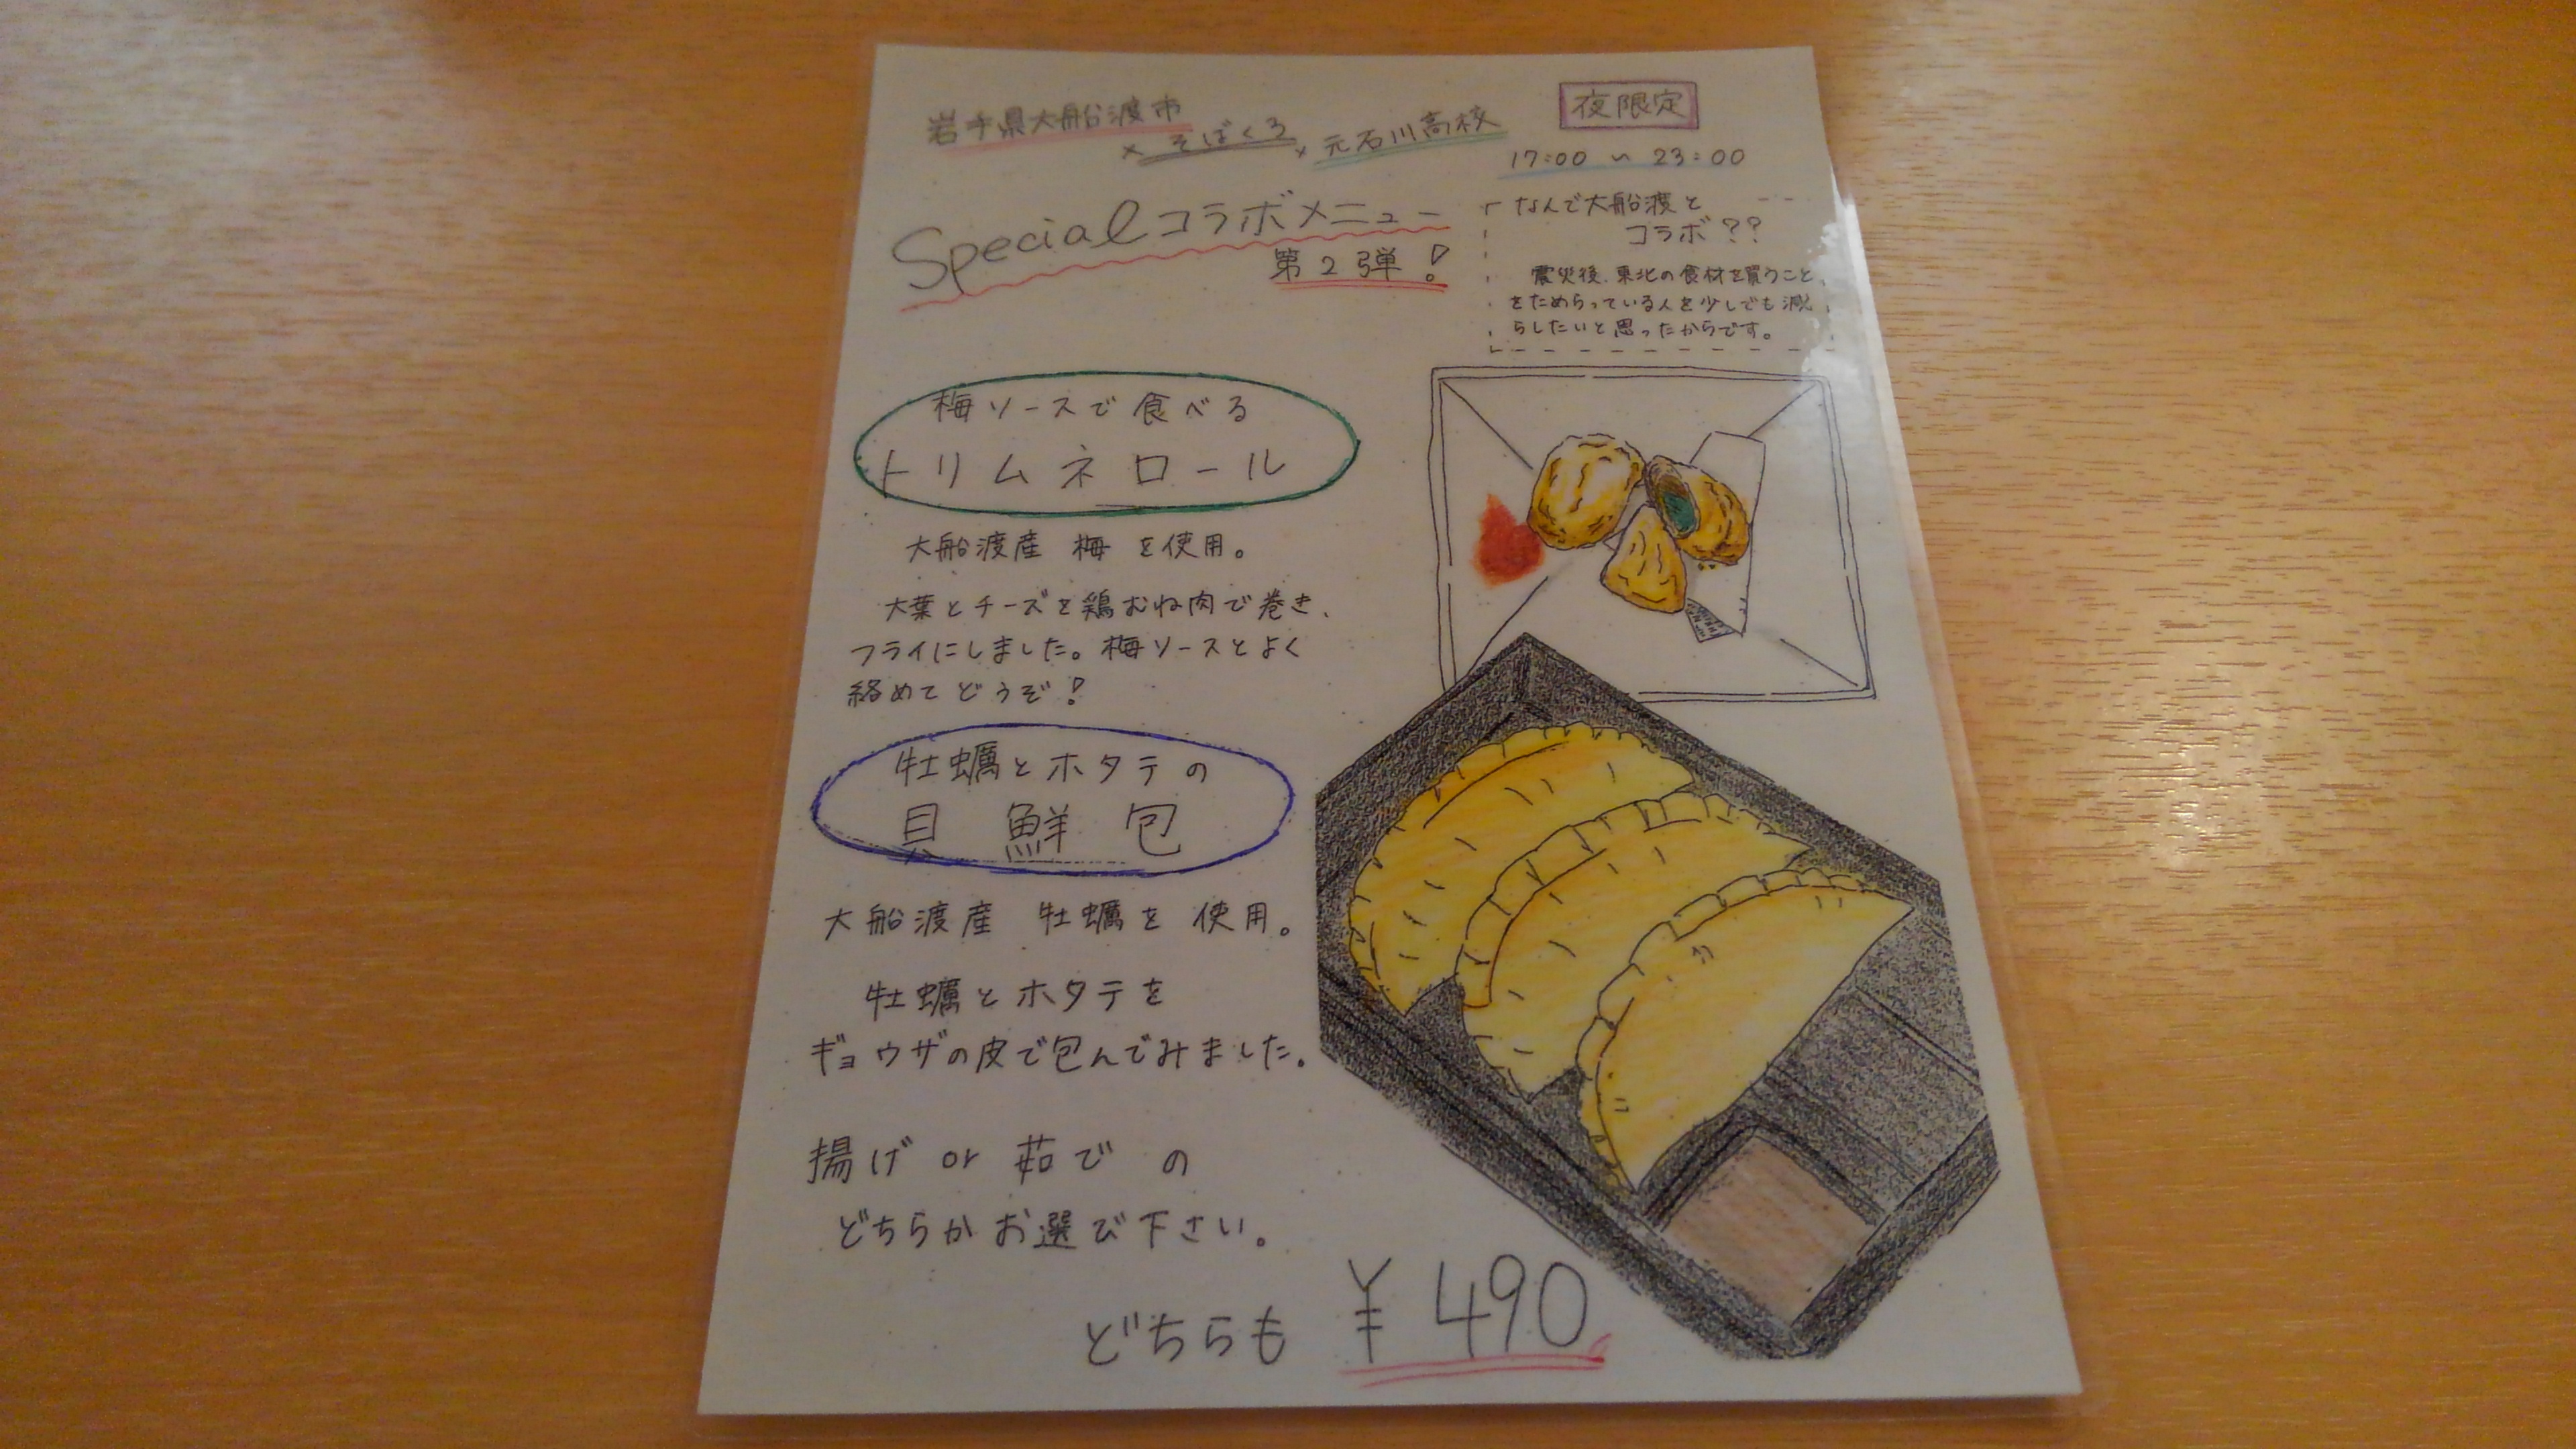 岩手県大船渡市
× そばくろ × 元石川高校
夜限定
17:00 〜 23:00
Specialコラボメニュー
第2弾!
なんで大船渡と
コラボ??
震災後、東北の食材を買うこと
をためらっている人を少しでも減
らしたいと思ったからです。
梅ソースで食べる
トリムネロール
大船渡産 梅 を使用。
大葉とチーズを鶏むね肉で巻き、
フライにしました。梅ソースとよく
絡めてどうぞ!
牡蠣とホタテの
貝鮮包
大船渡産 牡蠣を使用。
牡蠣とホタテを
ギョウザの皮で包んでみました。
揚げ or 茹で の
どちらかお選び下さい。
どちらも ¥490